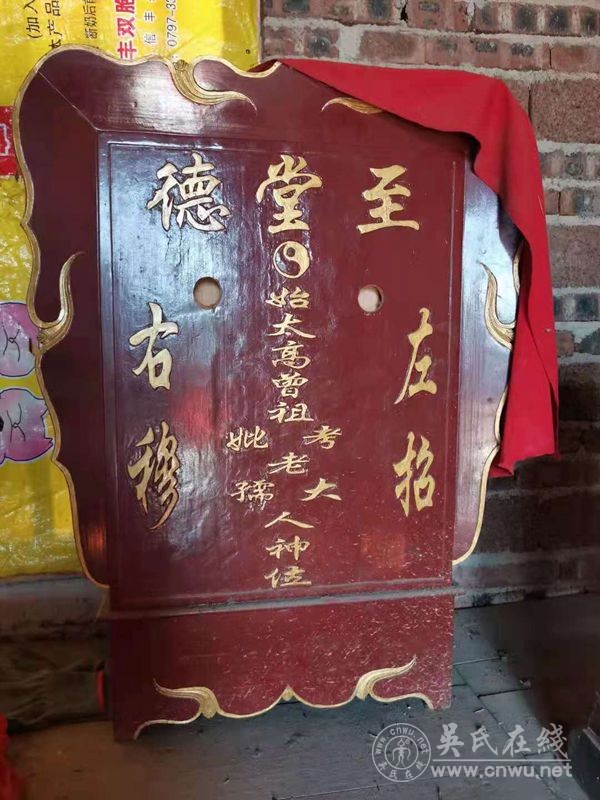 至堂德
左招
始太高曾祖
考妣
老
大孺
人神位
右穆
(加入
产品
断奶后
丰双胞
信丰
0797-3
吴氏在线
www.cnwu.net